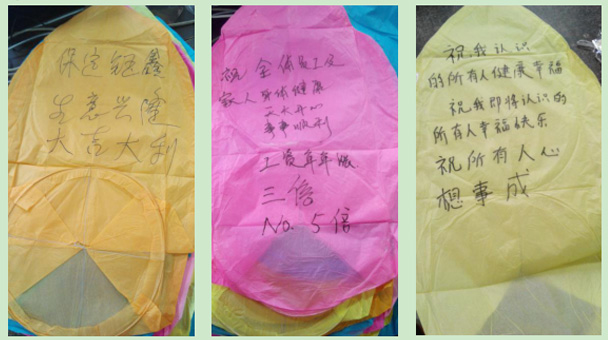 保定钜鑫
生意兴隆
大吉大利
祝全体员工及
家人身体健康
天天开心
事事顺利
工资年年涨
三倍
No. 5倍
祝我认识
的所有人健康幸福
祝我即将认识的
所有人幸福快乐
祝所有人心
想事成